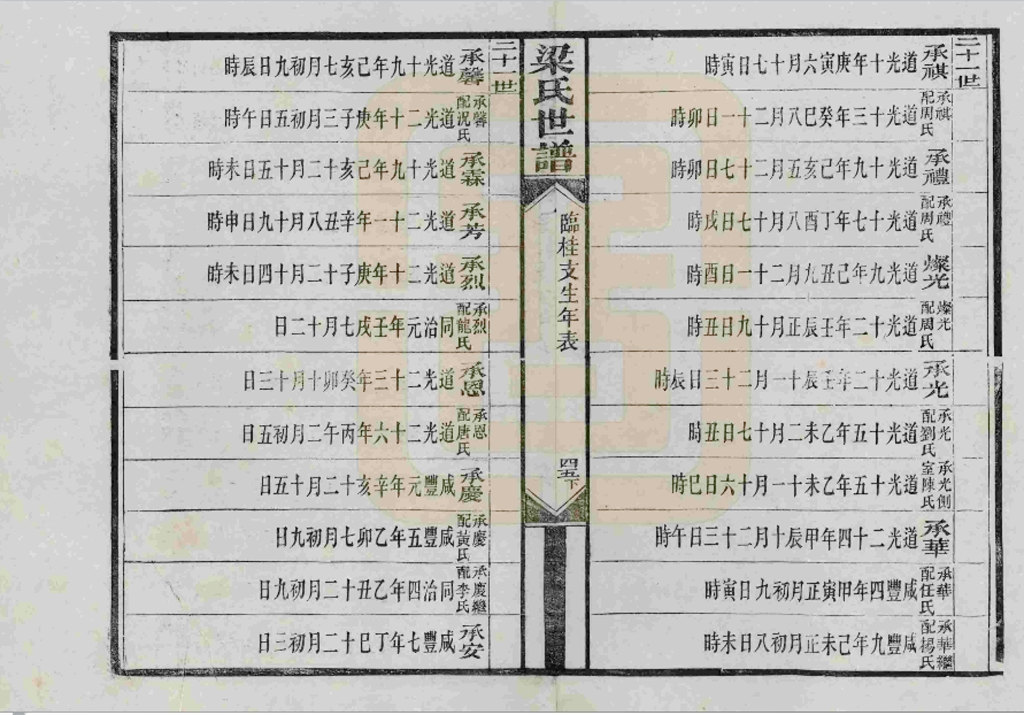 二十一世
承祺 道光十年庚寅六月十七日寅時
承祺配周氏 道光十三年癸巳八月二十一日卯時
承禮 道光十九年己亥五月二十七日卯時
承禮配周氏 道光十七年丁酉八月十七日戌時
燦光 道光九年己丑九月二十一日酉時
燦光配周氏 道光十二年壬辰正月十九日丑時
承光 道光十二年壬辰十一月二十三日辰時
承光配劉氏 道光十五年乙未二月十七日丑時
承光側室陳氏 道光十五年乙未十一月十六日巳時
承華 道光二十四年甲辰十月二十三日午時
承華配任氏 咸豐四年甲寅正月初九日寅時
承華繼配楊氏 咸豐九年己未正月初八日未時
梁氏世譜
臨桂支生年表
四五下
二十一世
承馨 道光十九年己亥七月初九日辰時
承馨配況氏 道光二十年庚子三月初五日午時
承霖 道光十九年己亥十二月十五日未時
承芳 道光二十一年辛丑八月十九日申時
承烈 道光二十年庚子十二月十四日未時
承烈配龍氏 同治元年壬戌七月十二日
承恩 道光二十三年癸卯十月十三日
承恩配唐氏 道光二十六年丙午二月初五日
承慶 咸豐元年辛亥十二月十五日
承慶配黃氏 咸豐五年乙卯七月初九日
承慶繼配李氏 同治四年乙丑十二月初九日
承安 咸豐七年丁巳十二月初三日